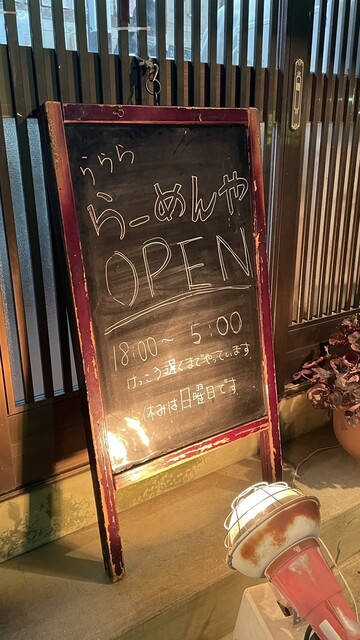 うらら
らーめんや
OPEN
18:00〜 5:00
けっこう遅くまでやっています
休みは日曜日です